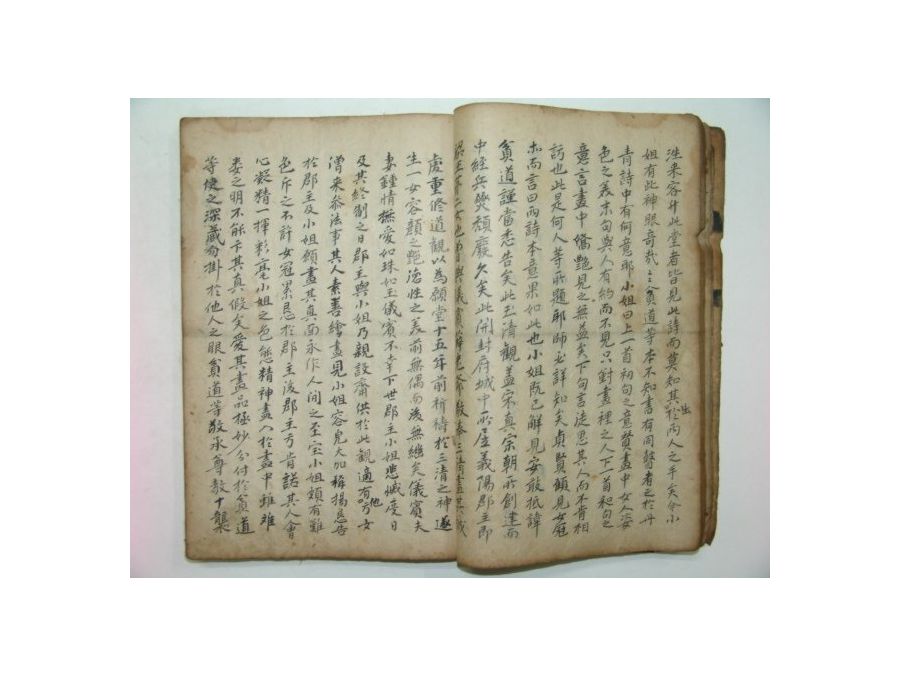 往來容廾此堂者皆見此詩而莫知其於兩人之手矣今小
姐有此神眼奇哉〻〻貧道等本不知書有同瞽者之於丹
青詩中有何意耶小姐曰上一首初句之意賢畫中女人姿
色之美末句與人有約而不見只對畫裡之人下一首和句之
意言畫中 艶見之無益矣下句言徒思其人而不肯相
訪也此是何人等所題耶師必詳知矣貞賢顧見女冠
而言曰兩詩本意果如此也小姐旣已解見安敢抵諱
貧道謹當悉告矣此玉淸觀盖宋眞宗朝所創建而
中經兵燹頹廢久矣此開封府城中所居義陽郡主即
處重修道觀以爲願堂十五年前祈禱於三淸之神遂
生一女容顔之艶德性之美前無偶而後無繼矣儀賓夫
妻鍾情撫愛如珠如玉儀賓不幸下世郡主小姐悲慽度日
及其終制之日郡主與小姐乃親設齋供於此觀適有他女
僧來參法事其人素善繪畫見小姐容皃大加稱揚懇告
於郡主及小姐願畵其眞面永作人間之至宝小姐頗有難
色斥之不許女冠累懇於郡主後郡主方肯諾其人會
心凝精一揮彩毫小姐之色態精神盡入於畫中雖難
婁之明不能卞其眞假矣愛其畫品極妙分付於貧道
等使之深藏勿掛於他人之眼貧道等敬承尊敎十襲